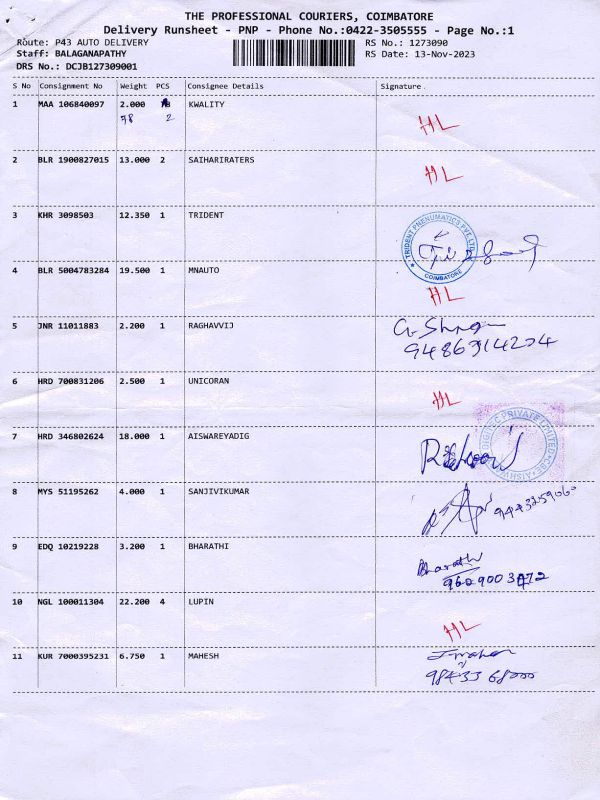 THE PROFESSIONAL COURIERS, COIMBATORE
Delivery Runsheet - PNP - Phone No.:0422-3505555 - Page No.:1
Route: P43 AUTO DELIVERY RS No.: 1273090
Staff: BALAGANAPATHY RS Date: 13-Nov-2023
DRS No.: DCJB127309001
S No Consignment No Weight PCS Consignee Details Signature
1 MAA 106840097 2.000 KWALITY
78 2
HL
2 BLR 1900827015 13.000 2 SAIHARIRATERS
HL
3 KHR 3098503 12.350 1 TRIDENT
TRIDENT PNEUMATICS PVT. LTD.
COIMBATORE
4 BLR 5004783284 19.500 1 MNAUTO
HL
5 JNR 11011883 2.200 1 RAGHAVVIJ
9486314234
6 HRD 700831206 2.500 1 UNICORAN
HL
7 HRD 346802624 18.000 1 AISWAREYADIG
PRIVATE LIMITED
8 MYS 51195262 4.000 1 SANJIVIKUMAR
9 EDQ 10219228 3.200 1 BHARATHI
Bharathi
10 NGL 100011304 22.200 4 LUPIN
HL
11 KUR 7000395231 6.750 1 MAHESH
98433 68000